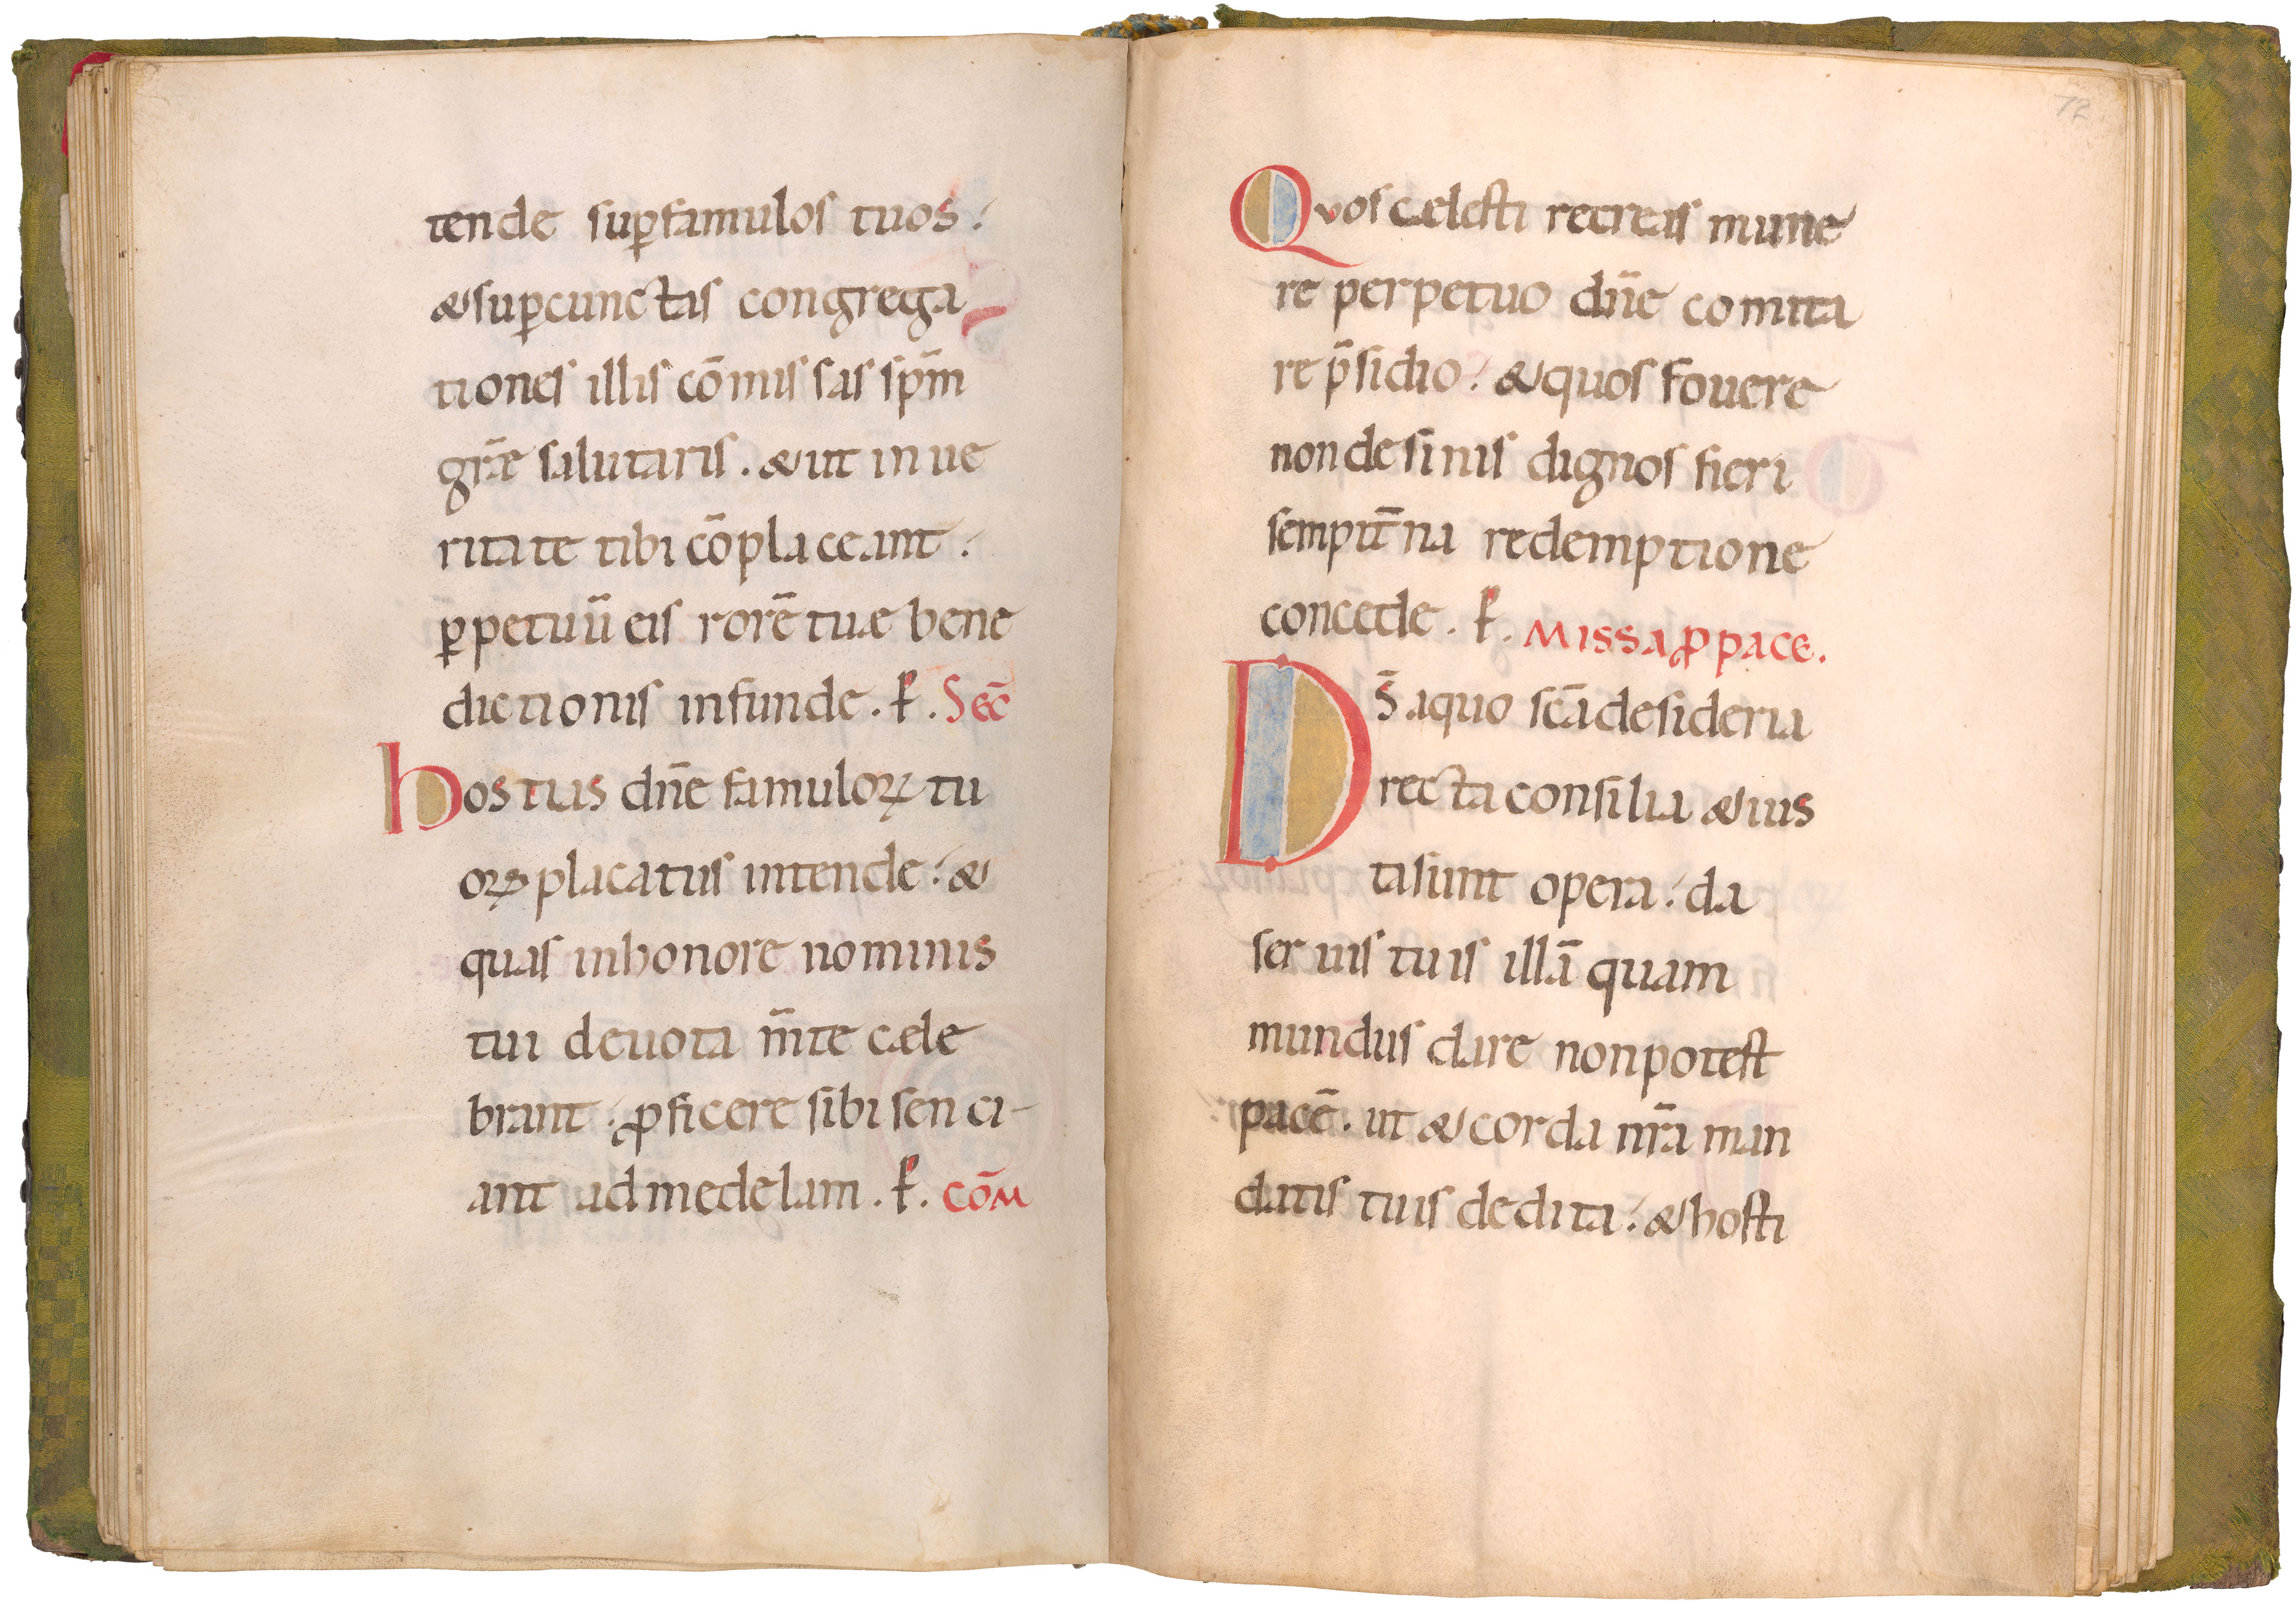 tende suꝑ famulos tuos.
& suꝑ cunctas congrega
tiones illis cōmissas spm̄
gr̄æ salutaris. & ut in ue
ritate tibi cōplaceant.
ꝑpetuū eis rorē tuæ bene
dictionis infunde. ꝑ. Sec̄
hostias dn̄e famuloꝝ tu
oꝝ placatus intende. &
quas in honore nominis
tui deuota m̄te cæle
brant. ꝓficere sibi senci-
ant ad medelam. ꝑ. cōm
72
Quos cælesti recreas mune
re perpetuo dn̄e comita
re p̄sidio. & quos fouere
non desinis dignos fieri
sempit̄na redemptione
concede. ꝑ. Missa ꝓ pace.
Ds̄ a quo sc̄a desideria
recta consilia & ius
ta sunt opera. da
seruis tuis illā quam
mundus dare non potest
pacē. ut & corda nr̄a man
datis tuis dedita. & hosti